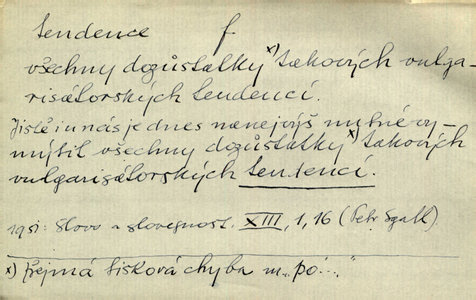 tendence f
všechny dozůstatky x) takových vulga-
risátorských tendencí.
Jistě i u nás je dnes nanejvýš nutné vy-
mýtit všechny dozůstatky x) takových
vulgarisátorských tendencí.
1951: Slovo a slovesnost. XIII, 1, 16 (Petr Sgall)
x) Zřejmá tisková chyba m. „po...“